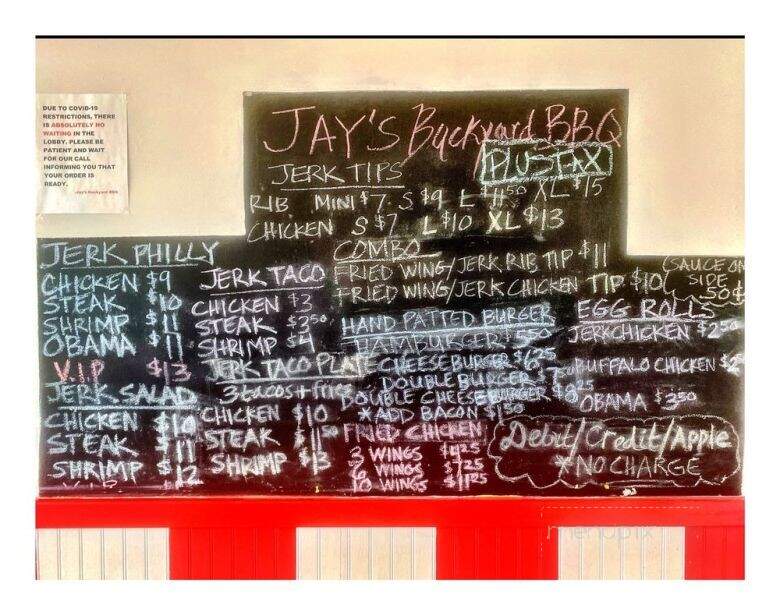 DUE TO COVID-19
RESTRICTIONS, THERE
IS ABSOLUTELY NO
WAITING IN THE
LOBBY. PLEASE BE
PATIENT AND WAIT
FOR OUR CALL
INFORMING YOU THAT
YOUR ORDER IS
READY.
Jay's Backyard BBQ
JAY'S Backyard BBQ
PLUS TAX
JERK TIPS
RIB MINI $7 S $9 L $11.50 XL $15
CHICKEN S $7 L $10 XL $13
COMBO
FRIED WING/JERK RIB TIP $11
FRIED WING/JERK CHICKEN TIP $10
(SAUCE ON
SIDE
50¢
JERK PHILLY
CHICKEN $9
STEAK $10
SHRIMP $11
OBAMA $11
V.I.P $13
JERK SALAD
CHICKEN $10
STEAK $11
SHRIMP $12
JERK TACO
CHICKEN $3
STEAK $3.50
SHRIMP $4
JERK TACO PLATE
3 tacos + fries
CHICKEN $10
STEAK $11.50
SHRIMP $13
HAND PATTED BURGER
HAMBURGER $5.50
CHEESEBURGER $6.25
DOUBLE BURGER
DOUBLE CHEESEBURGER $8.25
*ADD BACON $1.50
FRIED CHICKEN
3 WINGS $4.25
6 WINGS $7.25
10 WINGS $11.25
EGG ROLLS
JERK CHICKEN $2.50
BUFFALO CHICKEN
OBAMA $3.50
Debit/Credit/Apple
*NO CHARGE
menupix